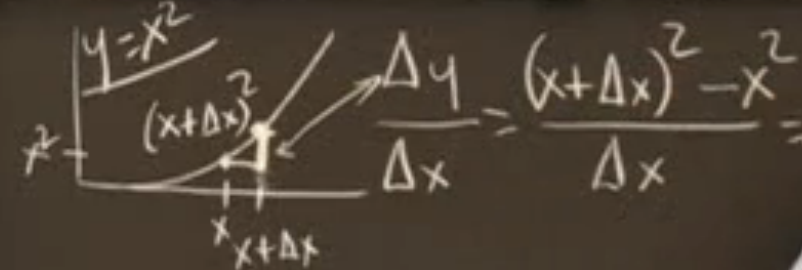 y=x²
(x+Δx)²
x²
x
x+Δx
Δy/Δx = ((x+Δx)² − x²)/Δx =